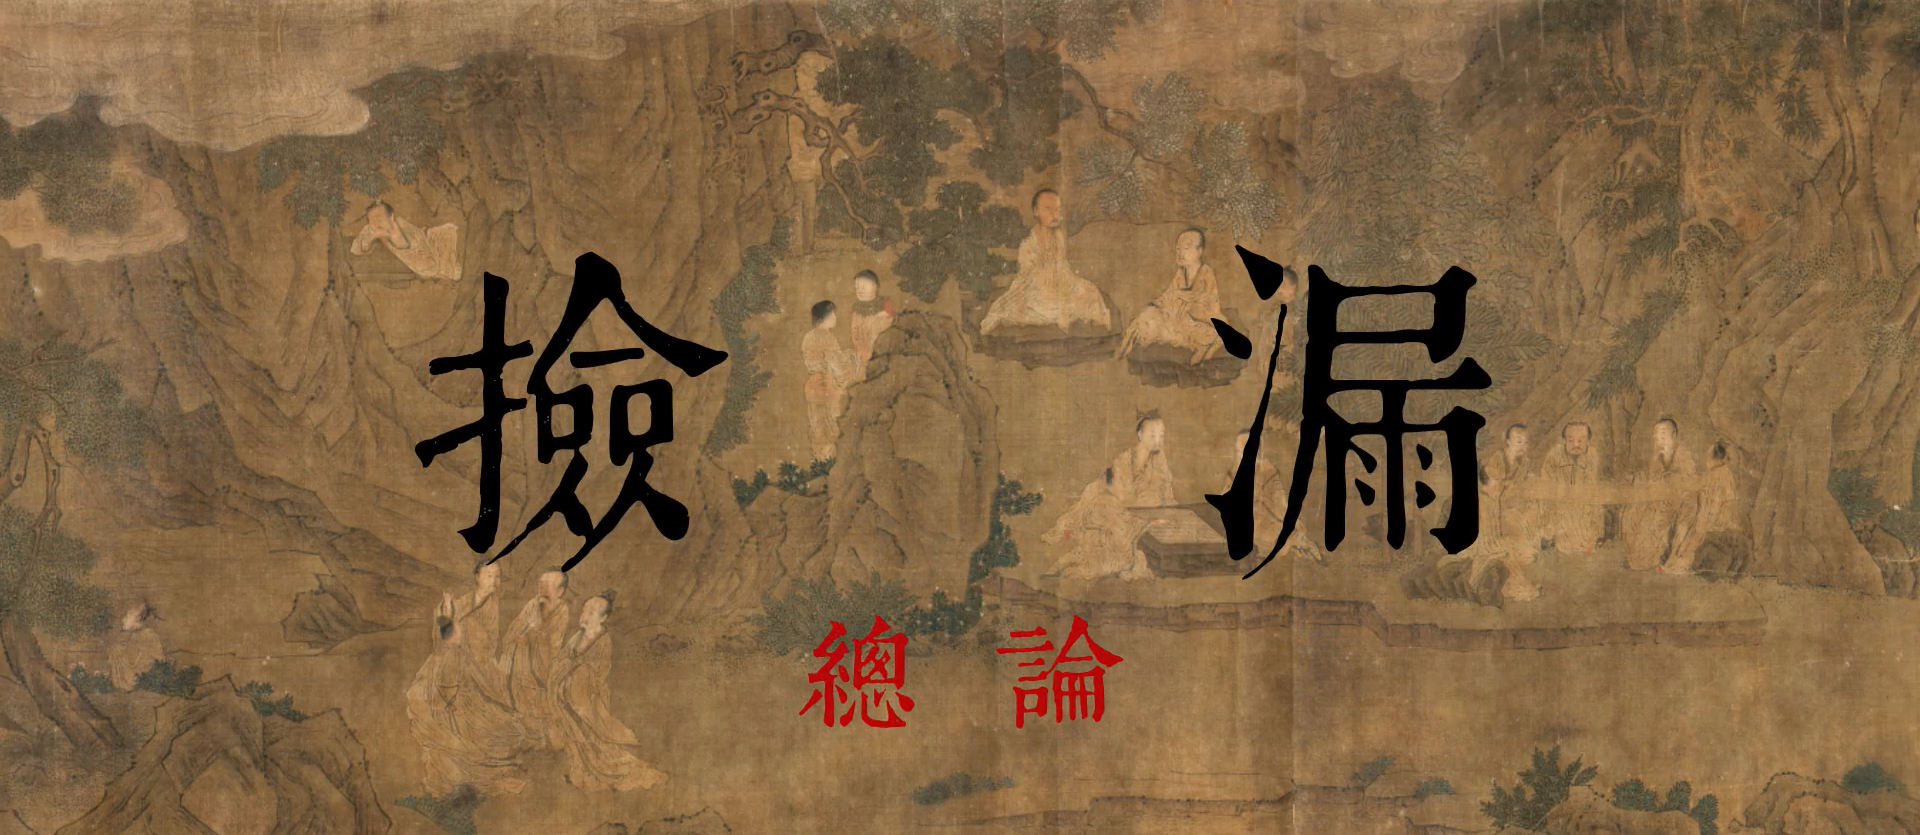 撿漏
總論